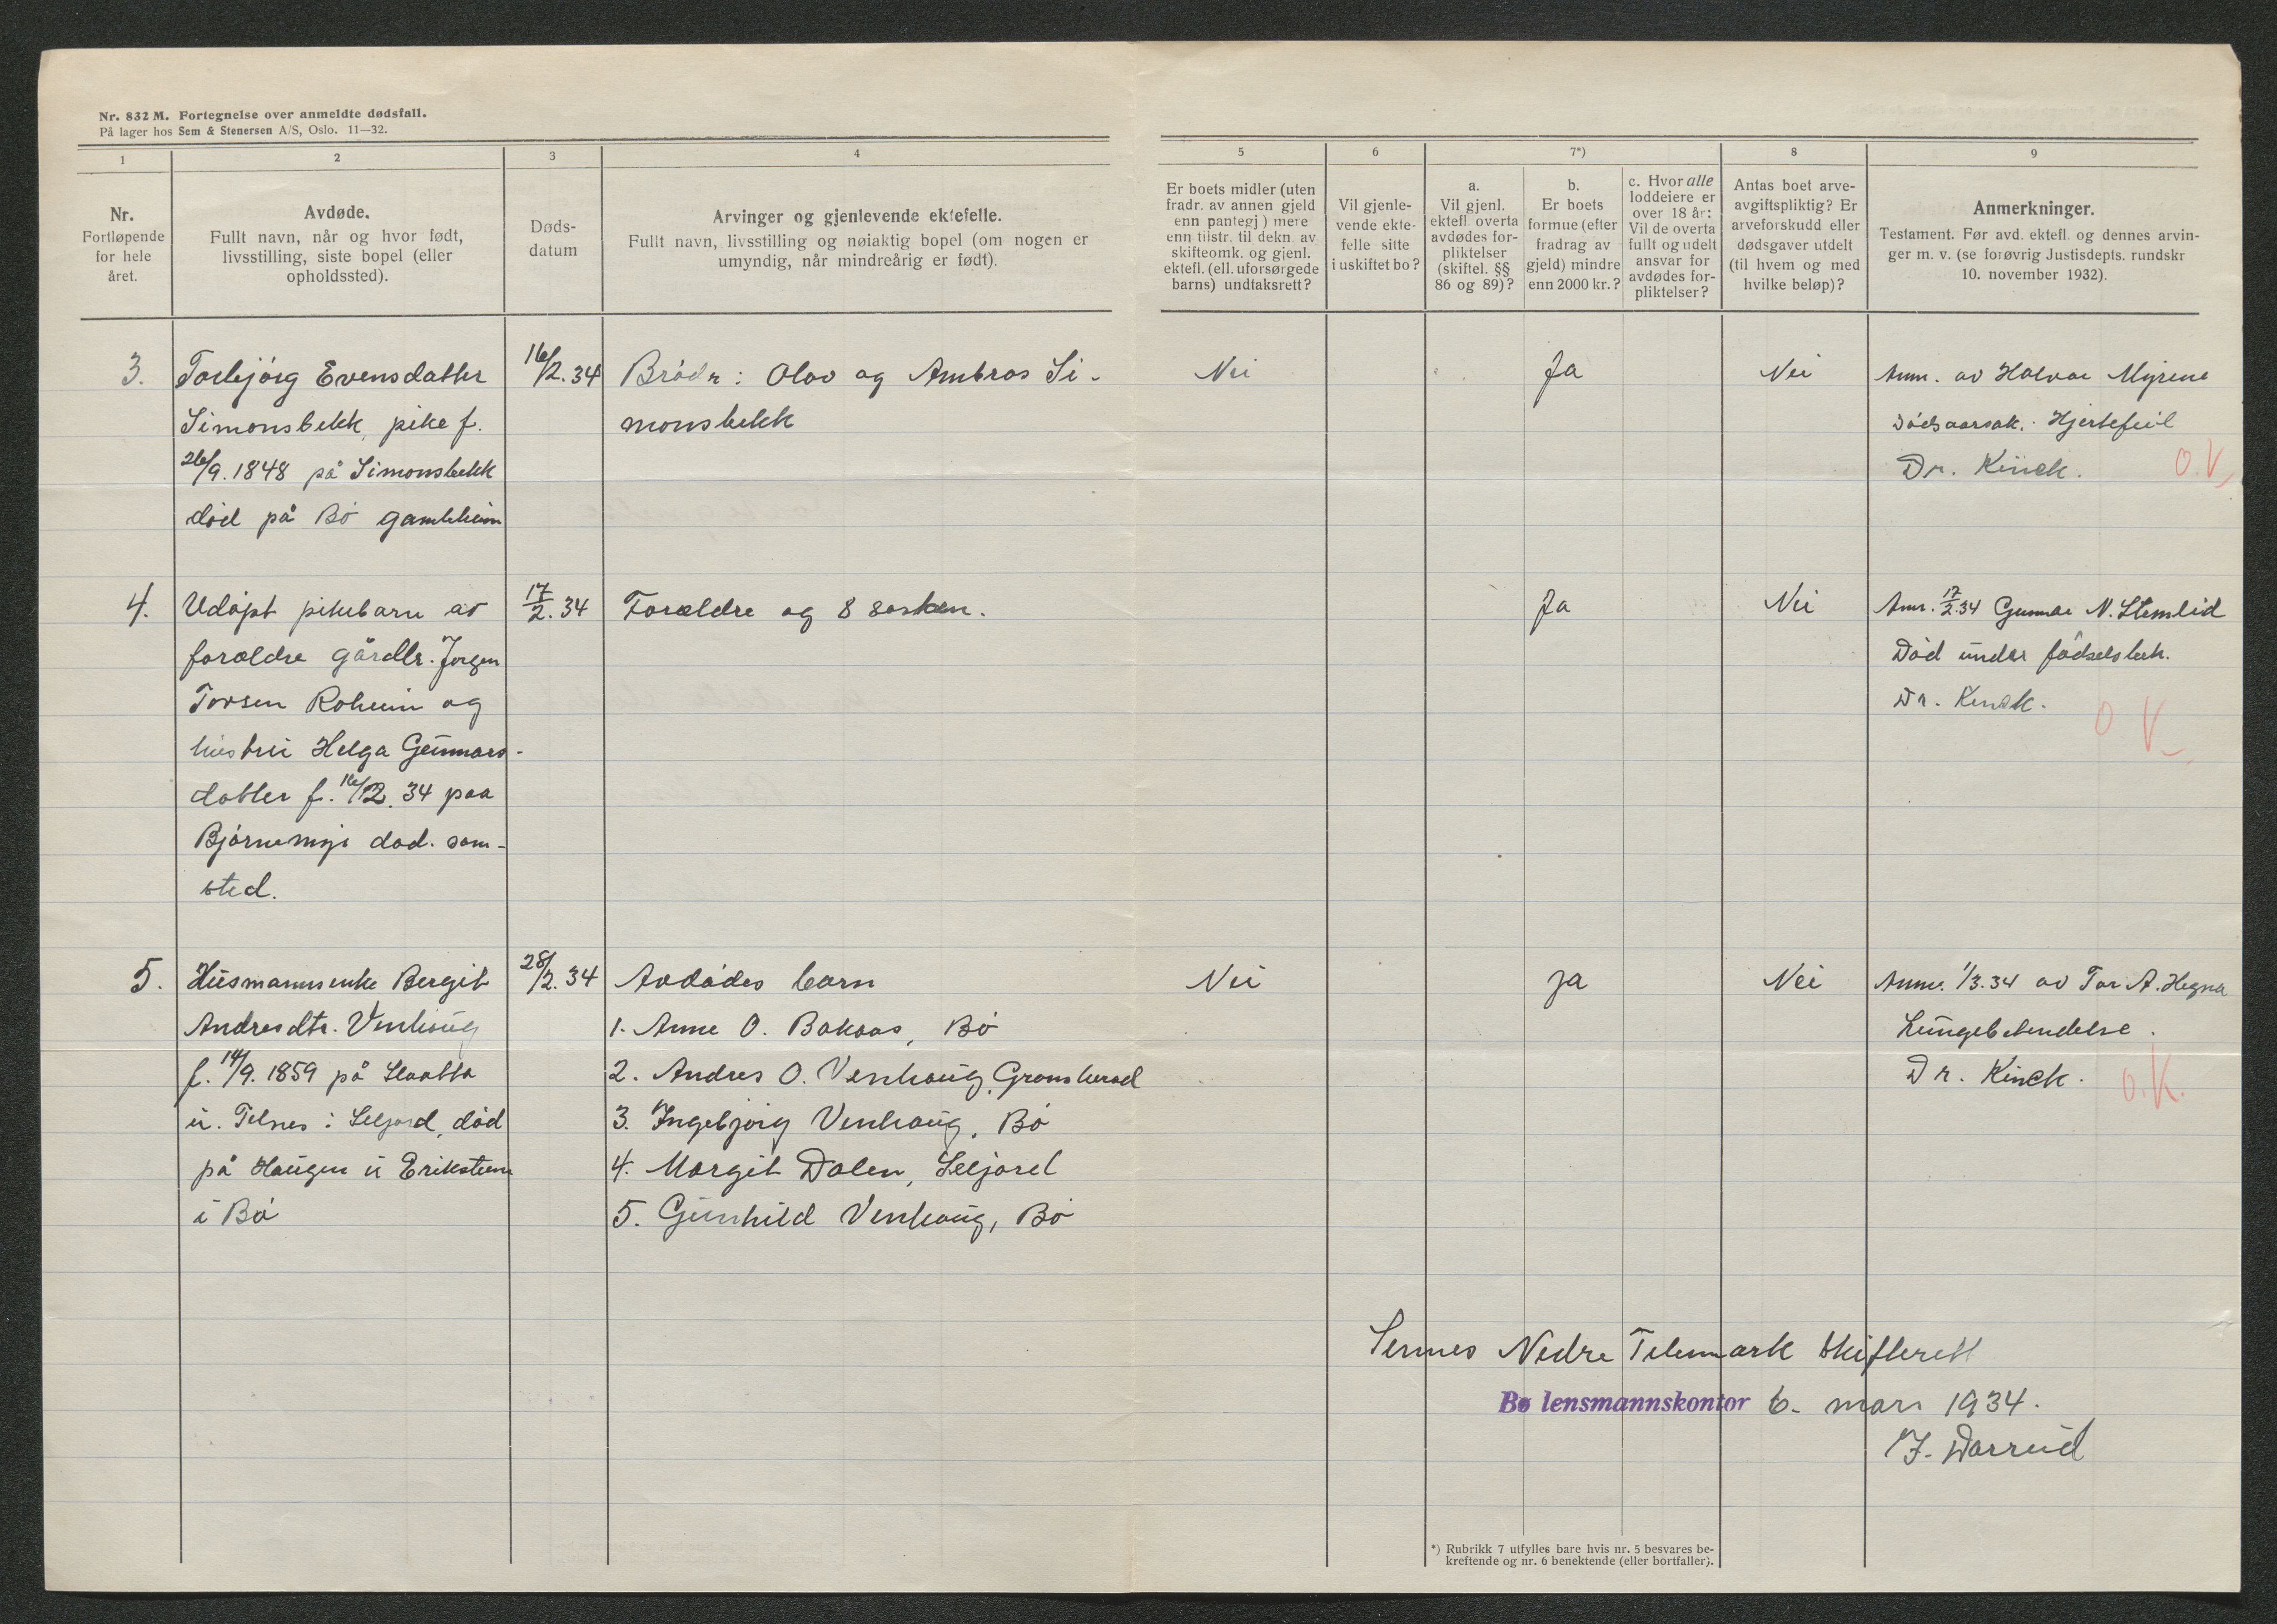 Nr. 832 M. Fortegnelse over anmeldte dødsfall.
På lager hos Sem & Stenersen A/S, Oslo. 11—32.
1
2
3
4
5
6
7*)
8
9
Nr.
Fortløpende
for hele
året.
Avdøde.
Fullt navn, når og hvor født,
livsstilling, siste bopel (eller
opholdssted).
Døds-
datum
Arvinger og gjenlevende ektefelle.
Fullt navn, livsstilling og nøiaktig bopel (om nogen er
umyndig, når mindreårig er født).
Er boets midler (uten
fradr. av annen gjeld
enn pantegj) mere
enn tilstr. til dekn. av
skifteomk. og gjenl.
ektefl. (ell. uforsørgede
barns) undtaksrett?
Vil gjenle-
vende ekte-
felle sitte
i uskiftet bo?
a.
Vil gjenl.
ektefl. overta
avdødes for-
pliktelser
(skiftel. §§
86 og 89)?
b.
Er boets
formue (efter
fradrag av
gjeld) mindre
enn 2000 kr.?
c. Hvor alle
loddeiere er
over 18 år:
Vil de overta
fullt og udelt
ansvar for
avdødes for-
pliktelser?
Antas boet arve-
avgiftspliktig? Er
arveforskudd eller
dødsgaver utdelt
(til hvem og med
hvilke beløp)?
Anmerkninger.
Testament. Før avd. ektefl. og dennes arvin-
ger m. v. (se forøvrig Justisdepts. rundskr
10. november 1932).
3.
Torbjörg Evensdatter
Simonsbekk, pike f.
26/9. 1848 på Simonsbekk
död på Bö gamleheim
16/2. 34
Brödr: Olav og Ambros Si-
monsbekk
Nei
Ja
Nei
Anm. av Halvar Myrene
Dödsaarsak: Hjertefeil
Dr. Kinck.
O.V
4.
Udöpt pikebarn av
forældre gårdbr. Jorgen
Torsen Roheim og
hustru Helga Gunnars-
datter f. 16/2. 34 paa
Björnemyr död. sam-
sted.
17/2. 34
Forældre og 8 sosken.
Ja
Nei
Anm. 17/2.34 Gunnar N. Stemlid
Död under födselsbeh.
Dr. Kinck.
O V
5.
Husmannsenke Bergit
Andresdtr. Venhaug
f. 14/9. 1859 på
u. Telnes i Seljord, död
på Haugen u Erikstein
i Bö
28/2. 34
Avdödes barn
1. Anne O. Bakaas, Bö
2. Andres O. Venhaug, Gransherad
3. Ingebjörg Venhaug, Bö
4. Margit Dalen, Seljord
5. Gunhild Venhaug, Bö
Nei
Ja
Nei
Anm. 1/3.34 av Tor A. Hegna
Lungebetendelse.
Dr. Kinck.
O.K.
Sennes Nedre Telemark skifterett
Bø lensmannskontor 6. mars 1934.
J. Darrud
*) Rubrikk 7 utfylles bare hvis nr. 5 besvares be-
kreftende og nr. 6 benektende (eller bortfaller).